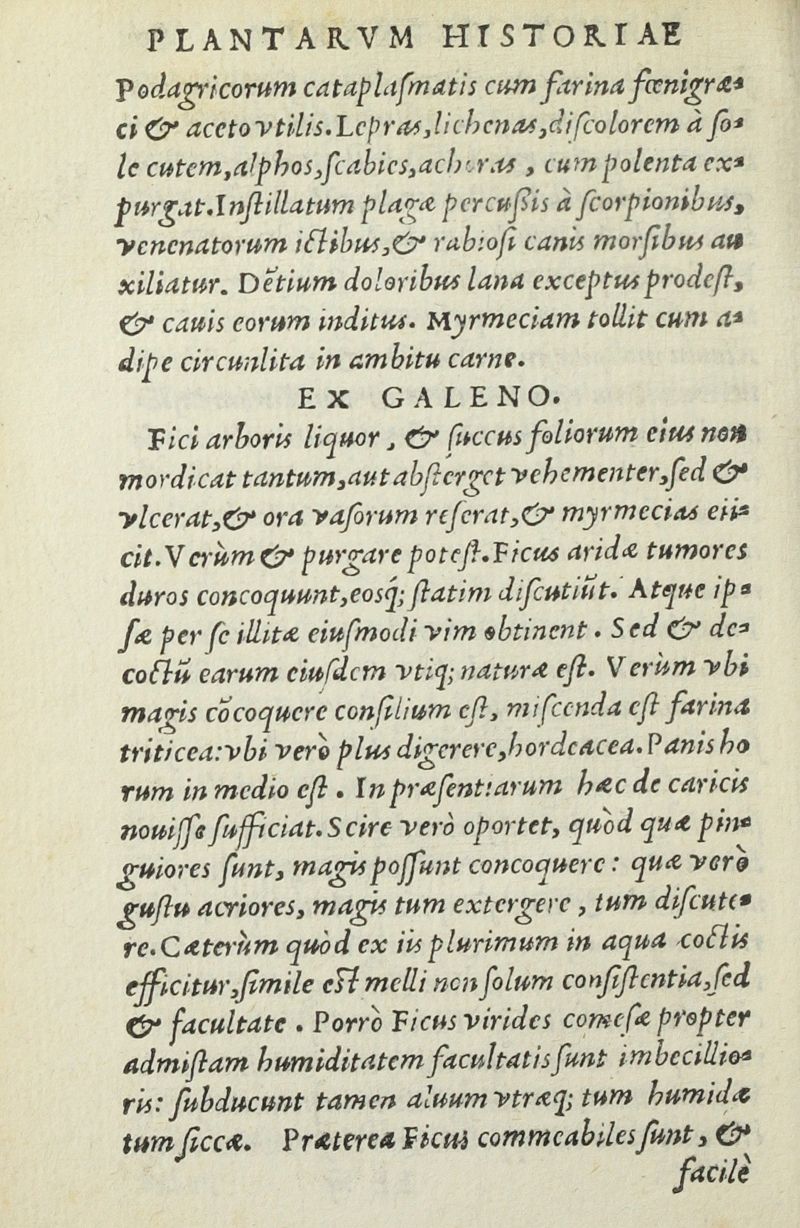 PLANTARVM HISTORIAE
Podagricorum cataplaſmatis cum farina fœnigræ-
ci & aceto vtilis. Lepras, lichenas, diſcolorem à ſo-
le cutem, alphos, ſcabies, achoras, cum polenta ex-
purgat. Inſtillatum plagæ percuſsis à ſcorpionibus,
venenatorum ictibus, & rabioſi canis morſibus au
xiliatur. Dẽtium doloribus lana exceptus prodeſt,
& cauis eorum inditus. Myrmeciam tollit cum a-
dipe circunlita in ambitu carne.
EX GALENO.
Fici arboris liquor, & ſuccus foliorum eius non
mordicat tantum, aut abſterget vehementer, ſed &
vlcerat, & ora vaſorum reſerat, & myrmecias eii-
cit. Verùm & purgare poteſt. Ficus aridæ tumores
duros concoquunt, eosq́; ſtatim diſcutiũt. Atque ip-
ſæ per ſe illitæ eiuſmodi vim obtinent. Sed & de-
coctũ earum eiuſdem vtiq; naturæ eſt. Verùm vbi
magis cõcoquere conſilium eſt, miſcenda eſt farina
triticea: vbi verò plus digerere, hordeacea. Panis ho
rum in medio eſt. In præſentiarum hæc de caricis
nouiſſe ſufficiat. Scire verò oportet, quòd quæ pin-
guiores ſunt, magis poſſunt concoquere: quæ verò
guſtu acriores, magis tum extergere, tum diſcute-
re. Cæterùm quòd ex iis plurimum in aqua coctis
efficitur, ſimile eſt melli non ſolum conſiſtentia, ſed
& facultate. Porrò Ficus virides comeſæ propter
admiſtam humiditatem facultatis ſunt imbecillio-
ris: ſubducunt tamen aluum vtræq; tum humidæ
tum ſiccæ. Præterea Ficus commeabiles ſunt, &
facilè